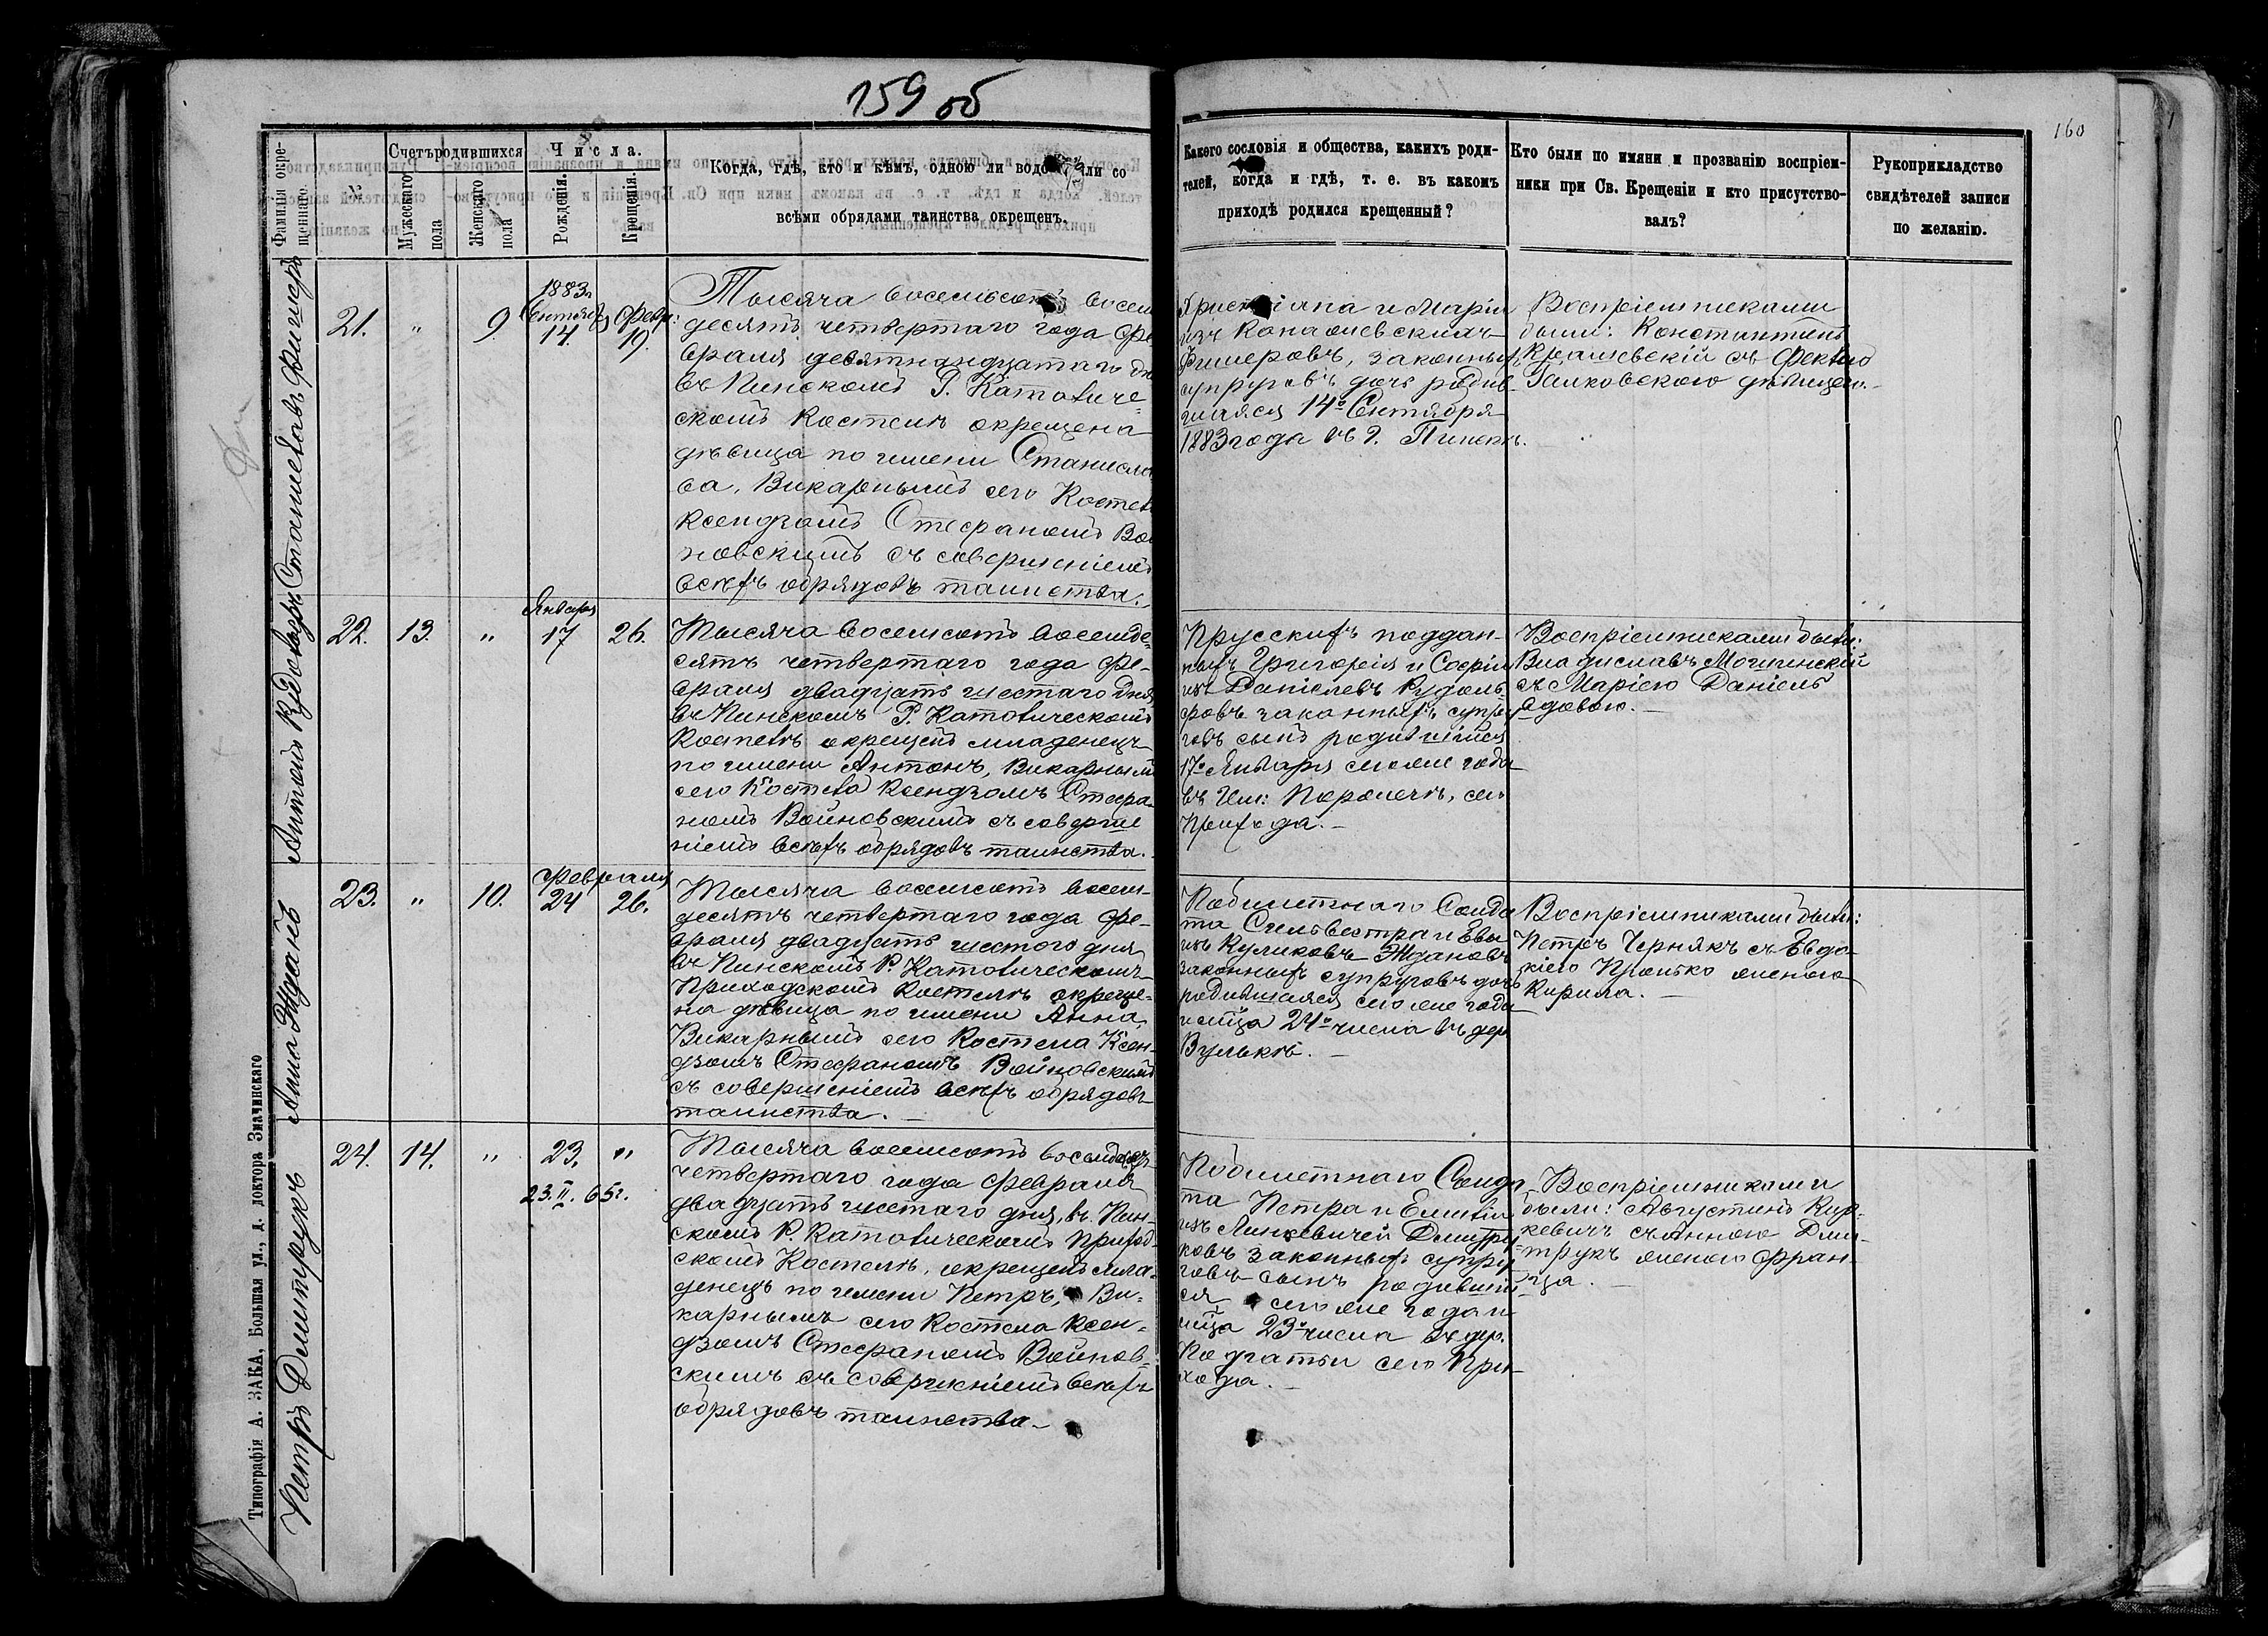 159 об
160
Фамилія окрещеннаго.
№
Счетъ родившихся
Мужескаго пола
Женскаго пола
Числа.
Рожденія.
Крещенія.
Когда, гдѣ, кто и кѣмъ, одною ли водою или со
всѣми обрядами таинства окрещенъ.
Какого сословія и общества, какихъ роди-
телей, когда и гдѣ, т. е. въ какомъ
приходѣ родился крещенный?
Кто были по имяни и прозванію воспріем-
ники при Св. Крещеніи и кто присутство-
валъ?
Рукоприкладство
свидѣтелей записи
по желанію.
Станислава Фишеръ
21.
"
9
1883г.
Сентября
14.
Февр:
19.
Тысяча восемьсотъ восем
десятъ четвертаго года Фе
враля девятнандцатаго дн
въ Пинскомъ Р. Католиче-
скомъ Костелѣ окрещена
дѣвица по имени Станисла
ва, Викарнымъ сего Костел
Ксендзомъ Стефаномъ Вой
новскимъ съ совершеніемъ
всѣхъ обрядовъ таинства.
Христіана и Маріи
изъ
Фишеровъ, законных
супруговъ дочь родив-
шаяся 14го Сентября
1883 года въ г. Пинскѣ.
Воспріемниками
были: Константинъ
съ Феклою
дѣвицею.
Антонъ
22.
13.
"
Января
17
26.
Тысяча восемсотъ восемде-
сятъ четвертаго года Фе-
враля двадцать шестаго дня
въ Пинскомъ Р. Католическомъ
Костелѣ окрещенъ младенецъ
по имени Антонъ, Викарнымъ
сего Костела Ксендзомъ Стефа-
номъ Войновскимъ съ соверше
ніемъ всѣхъ обрядовъ таинства.
Прусскихъ поддан-
ныхъ Григорія и Софіи
изъ Даніелевъ Рудоль-
фовъ законныхъ супру
говъ сынъ родившійся
17го Января сего же года
въ Им: сего
Прихода.
Воспріемниками были:
Владиславъ Могинскій
съ Маріею Даніель
вдовою.
Анна Жданъ
23.
"
10.
Февраля
24
26.
Тысяча восемсотъ восем-
десятъ четвертаго года Фе-
враля двадцать шестого дня
въ Пинскомъ Р. Католическомъ
Приходскомъ Костелѣ окреще-
на дѣвица по имени Анна,
Викарнымъ сего Костела Ксен-
дзомъ Стефаномъ Войновскимъ
съ совершеніемъ всѣхъ обрядовъ
таинства.
Побилетнаго Солда
та Сильвестра и Евы
изъ Куликовъ Ждановъ
законныхъ супруговъ дочь
родившаяся сего же года
и мѣца 24го числа въ дер
Вулькѣ.
Воспріемниками были:
Петръ Чернякъ съ Евдо-
кіею женою
Кирила.
Петръ Дмитрукъ
24.
14.
"
23.
"
23.II.65г.
Тысяча восемсотъ восемдесятъ
четвертаго года Февраля
двадцать шестаго дня, въ Пин-
скомъ Р. Католическомъ Приход-
скомъ Костелѣ, окрещенъ мла-
денецъ по имени Петръ, Ви-
карнымъ сего Костела Ксен-
дзомъ Стефаномъ Войнов-
скимъ съ совершеніемъ всѣхъ
обрядовъ таинства
Побилетнаго Солда
та Петра и Емиліи
изъ Линкевичей Дмитру
ковъ законныхъ супру
говъ сынъ родившій
ся сего же года и
мѣца 23го числа въ дер.
сего При-
хода.
Воспріемниками
были: Августинъ Кир-
кевичъ съ Анною Дми-
трукъ женою Фран-
ца.
Типографія А. ЗАКА, Большая ул., д. доктора Значинскаго